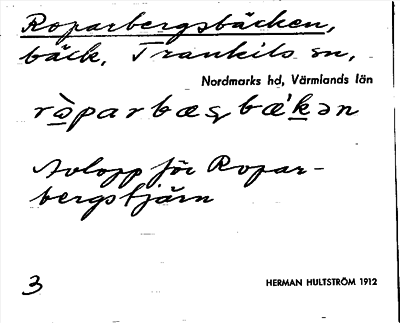 Roparbergsbäcken,
bäck, Trankils sn,
Nordmarks hd, Värmlands län
Avlopp för Ropar-
bergstjärn
3
HERMAN HULTSTRÖM 1912